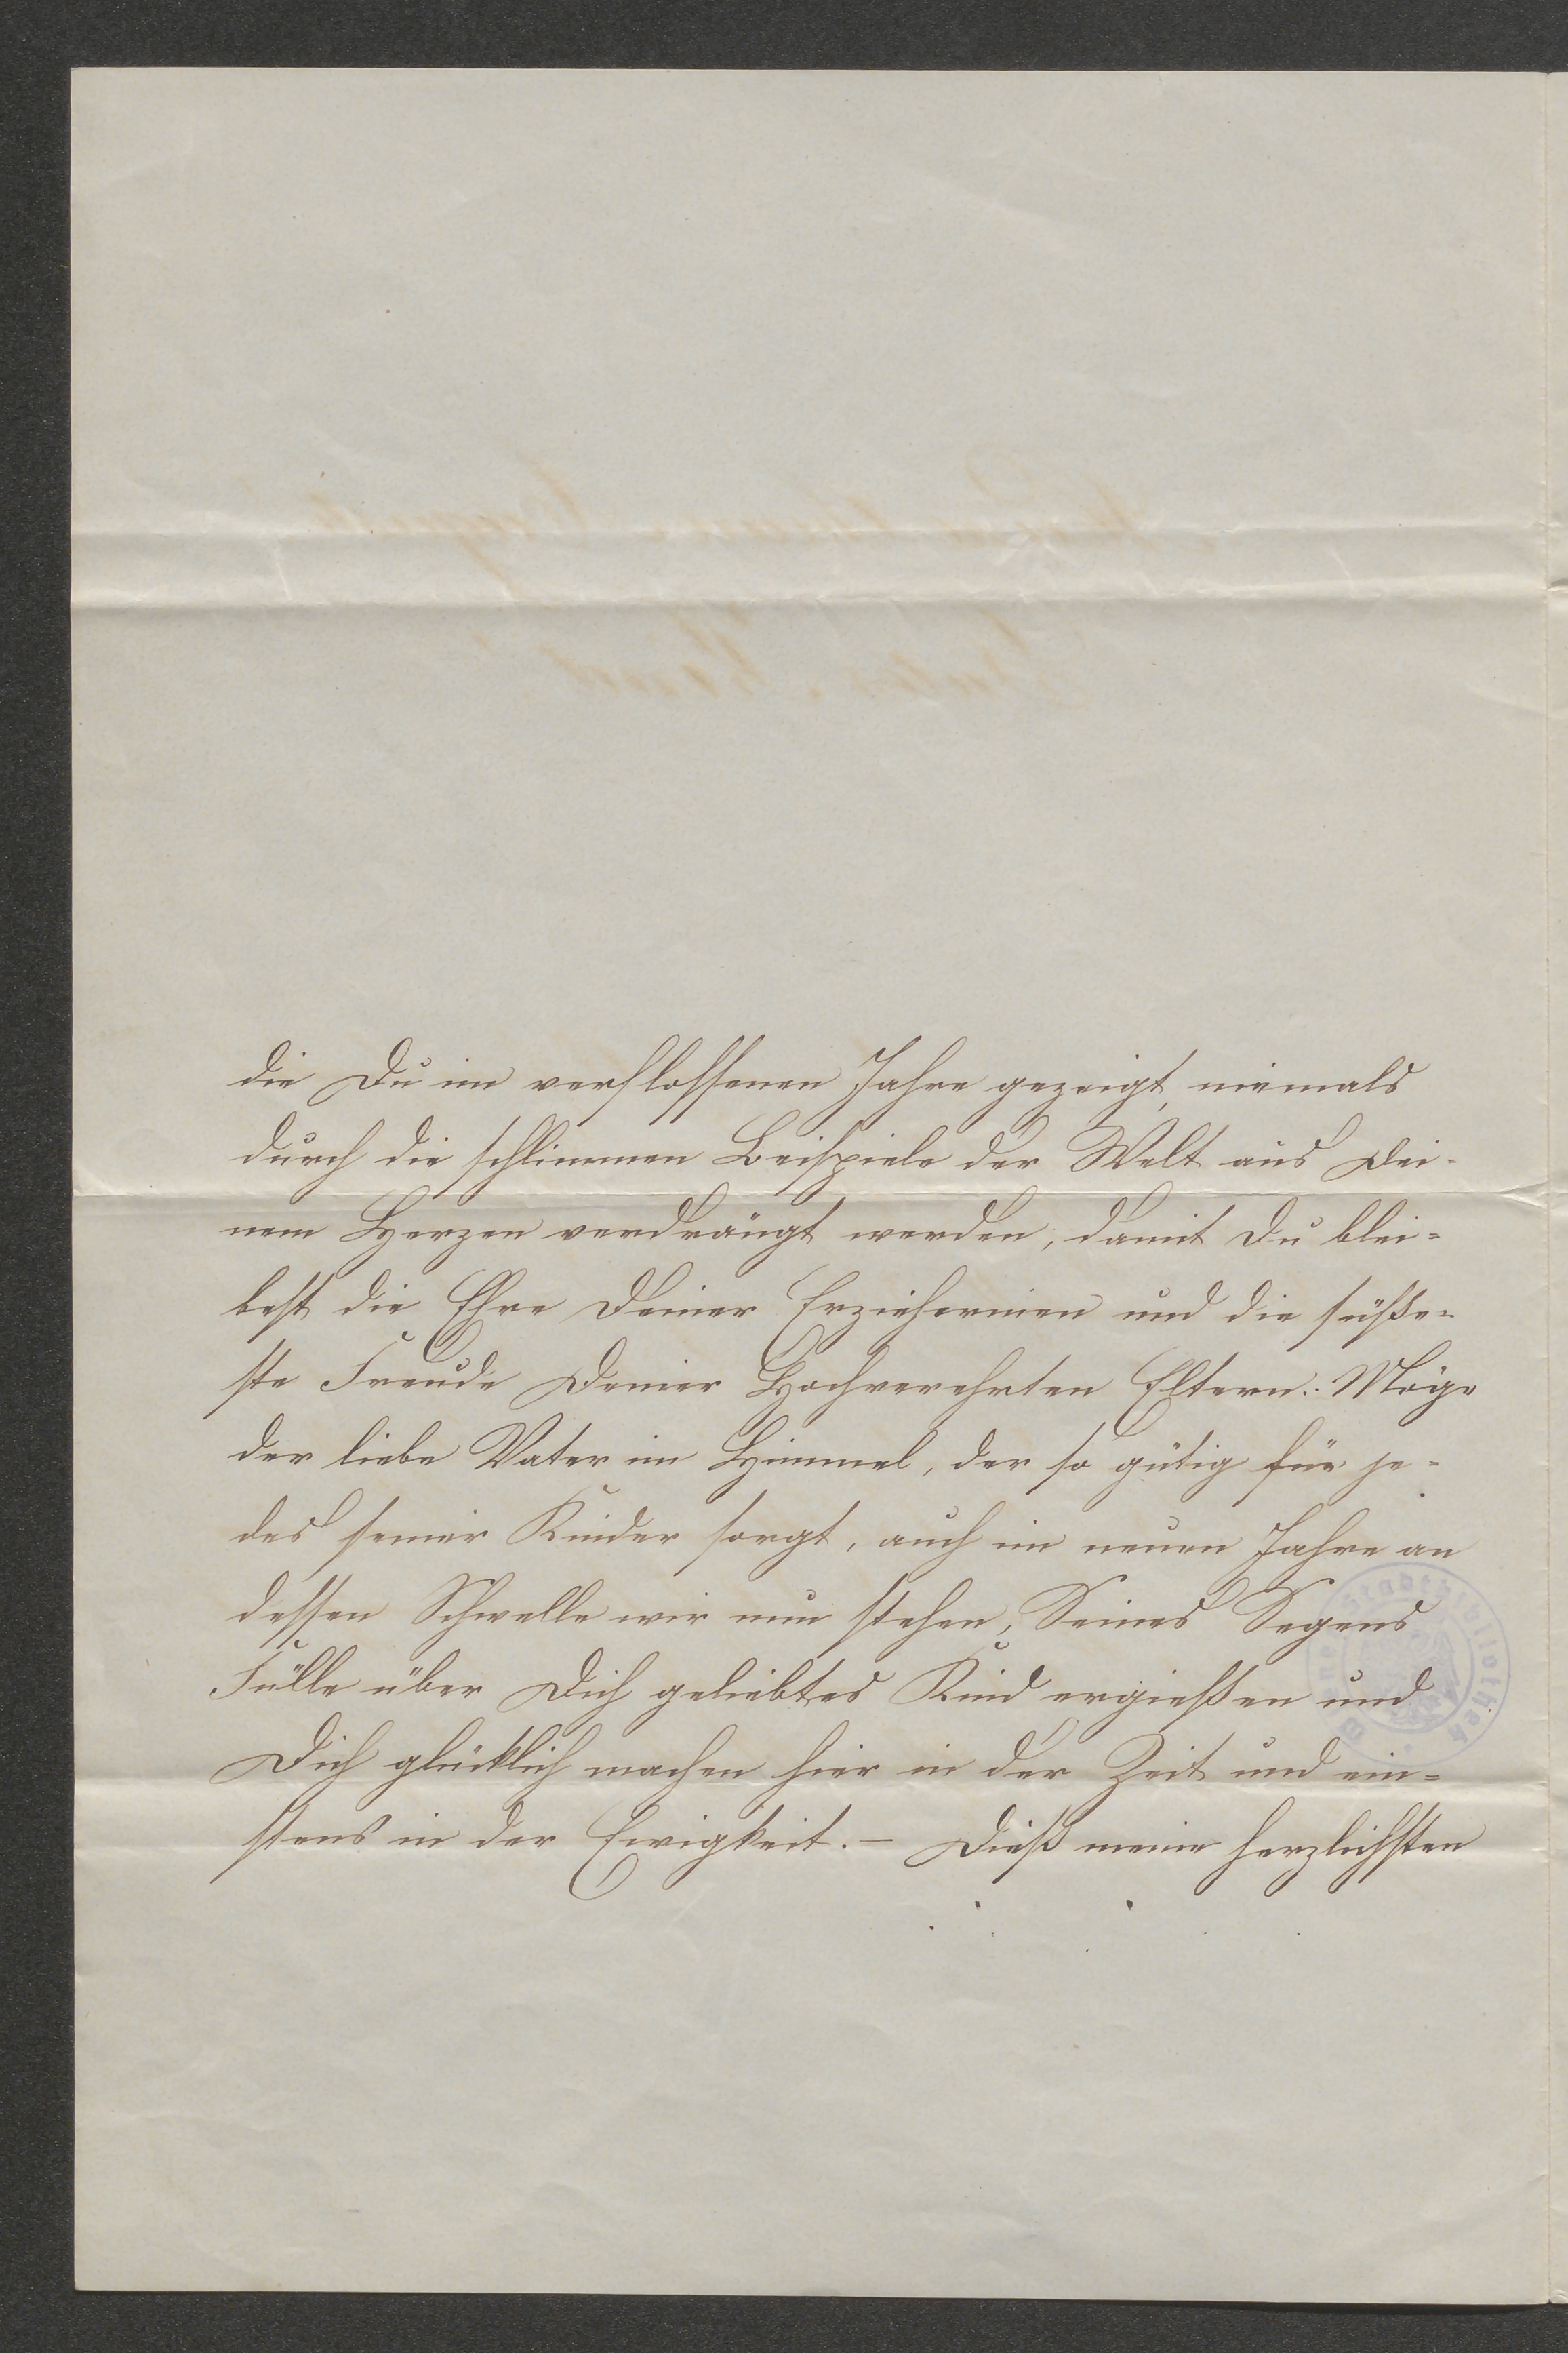 die Du im verflossenen Jahre gezeigt, niemals
durch die schlimmen Beispiele der Welt aus Dei-
nem Herzen verdrängt werden, damit Du blei-
best die Ehre Deiner Erzieherinen und die süße-
ste Freude Deiner Hochverehrten Eltern. Möge
der liebe Vater im Himmel, der so gütig für je-
des seiner Kinder sorgt, auch im neuen Jahre an
dessen Schwelle wir nun stehen, Seines Segens
Fülle über Dich geliebtes Kind ergießen und
Dich glücklich machen hier in der Zeit und ein-
stens in der Ewigkeit. – Dieß meine herzlichsten